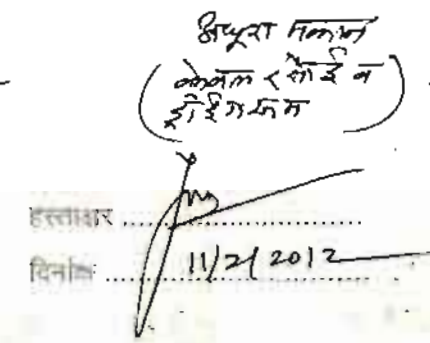 अधूरा मकान
(केवल रसोई व
ड्रोईगरूम)
हस्ताक्षर
दिनांक 11/2/2012